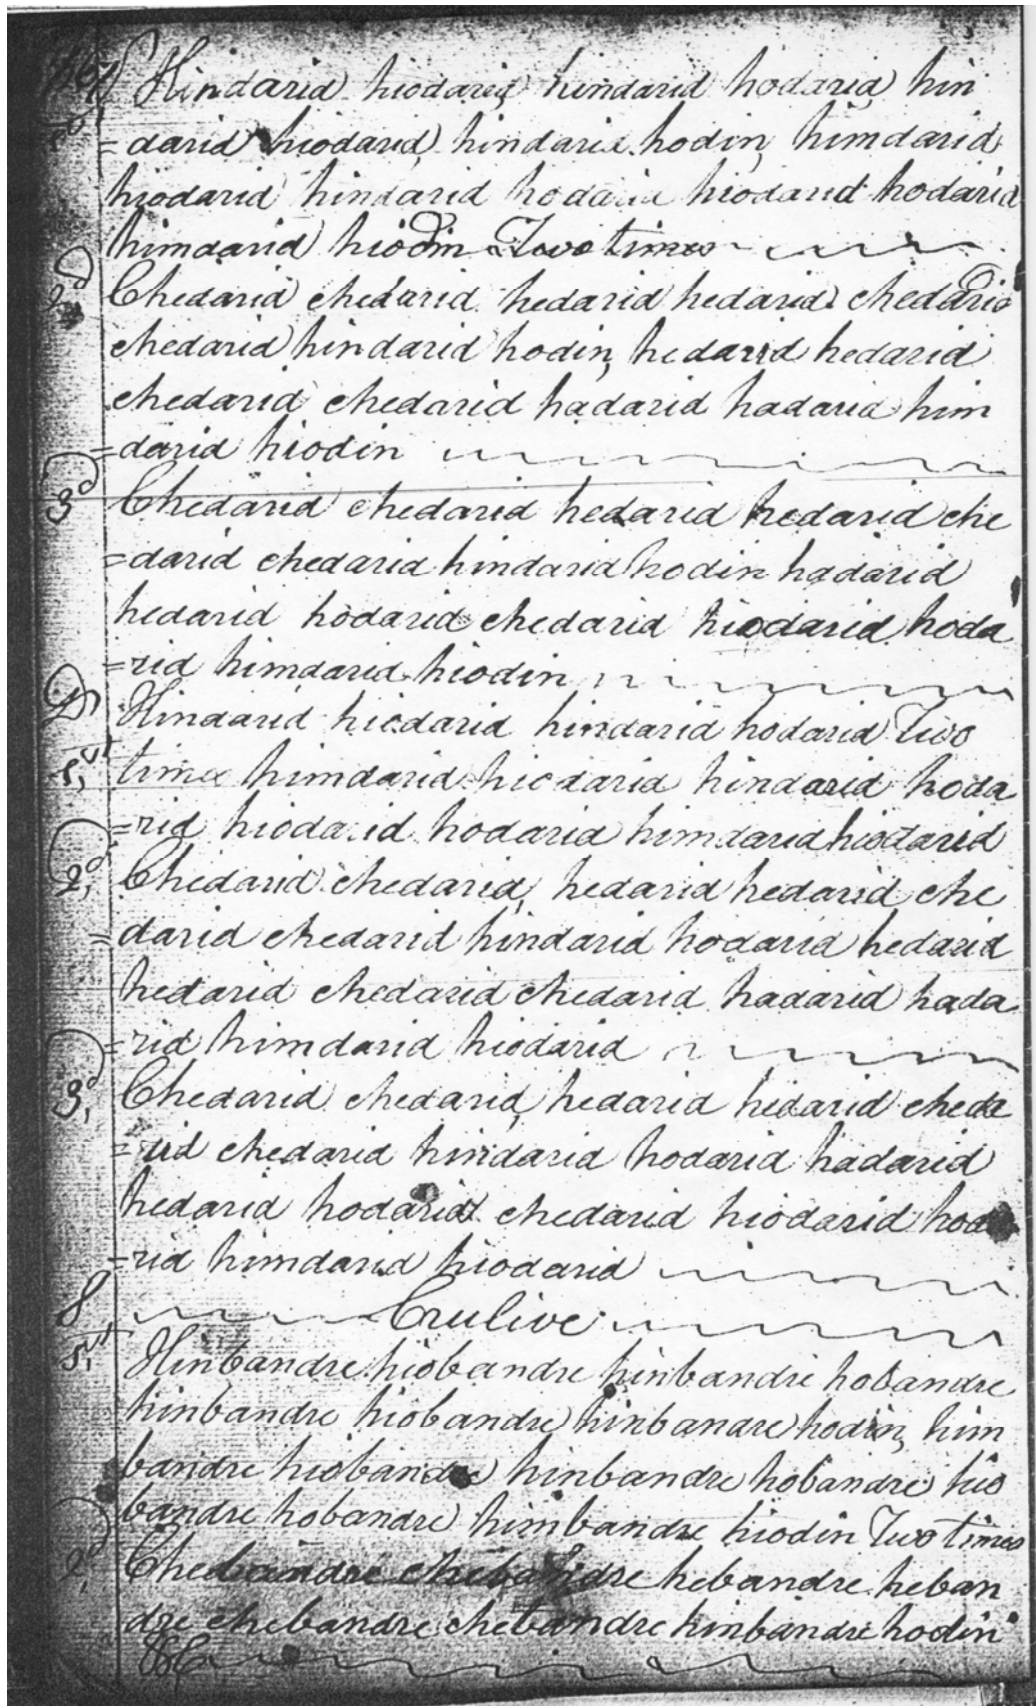 Hindarid hiodarid hindarid hodarid, hin
1st = darid hiodarid, hindarid hodin, himdarid
hiodarid hindarid hodarid hiodarid hodarid
himdarid hiodin Two times
2d Chedarid chedarid hedarid hedarid chedarid
chedarid hindarid hodin, hedarid hedarid
chedarid chedarid hadarid hadarid him
=darid hiodin
3d Chedarid chedarid hedarid hedarid che
=darid chedarid hindarid hodin hadarid
hedarid hodarid chedarid hiodarid hoda
=rid himdarid hiodin
D Hindarid hiodarid hindarid hodarid Two
1st times himdarid hiodarid hindarid hoda
=rid hiodarid hodarid himdarid hiodarid
2d Chedarid chedarid, hedarid hedarid che
=darid chedarid hindarid hodarid hedarid
hedarid chedarid chedarid hadarid hada
=rid himdarid hiodarid
3d Chedarid chedarid, hedarid hedarid cheda
=rid chedarid hindarid hodarid hadarid
hedarid hodarid chedarid hiodarid hoda
=rid himdarid hiodarid
Crulive
1st Hinbandre hiobandre hinbandre hobandre
hinbandre hiobandre hinbandre hodin, him
bandre hiobandre hinbandre hobandre hio
bandre hobandre himbandre hiodin Two times
2d Chebandre chebandre hebandre heban
dre chebandre chebandre hinbandre hodin
&C